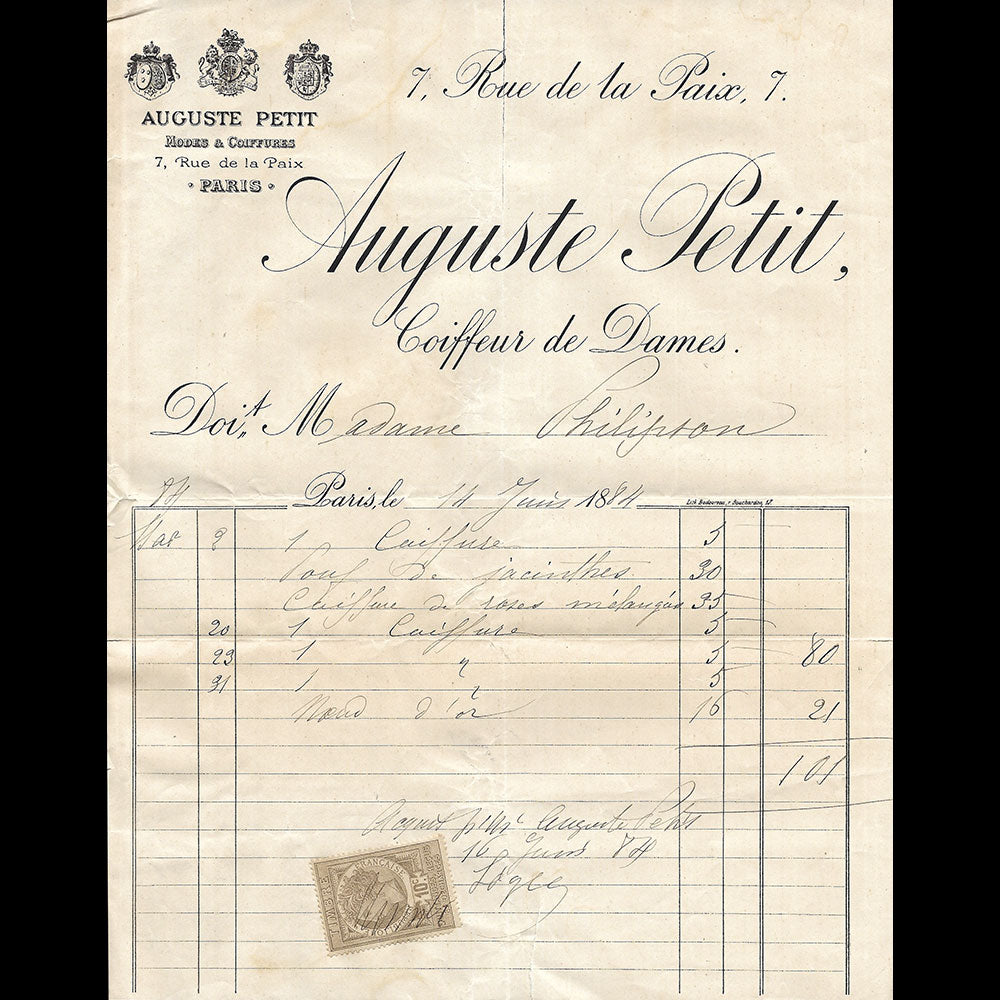 7, Rue de la Paix, 7.
AUGUSTE PETIT
MODES & COIFFURES
7, Rue de la Paix
PARIS
Auguste Petit,
Coiffeur de Dames.
Doit Madame Philipson
84 Paris, le 14 Juin 1884
Mar 2 1 Coiffure 5
Pouf de jacinthes 30
Coiffure de roses mélangées 35
20 1 Coiffure 5
23 1 " 5 80
31 1 " 5
Noeud d'or 16 21
101
Acquit pour Auguste Petit
16 Juin 84
FRANÇAISE
10c